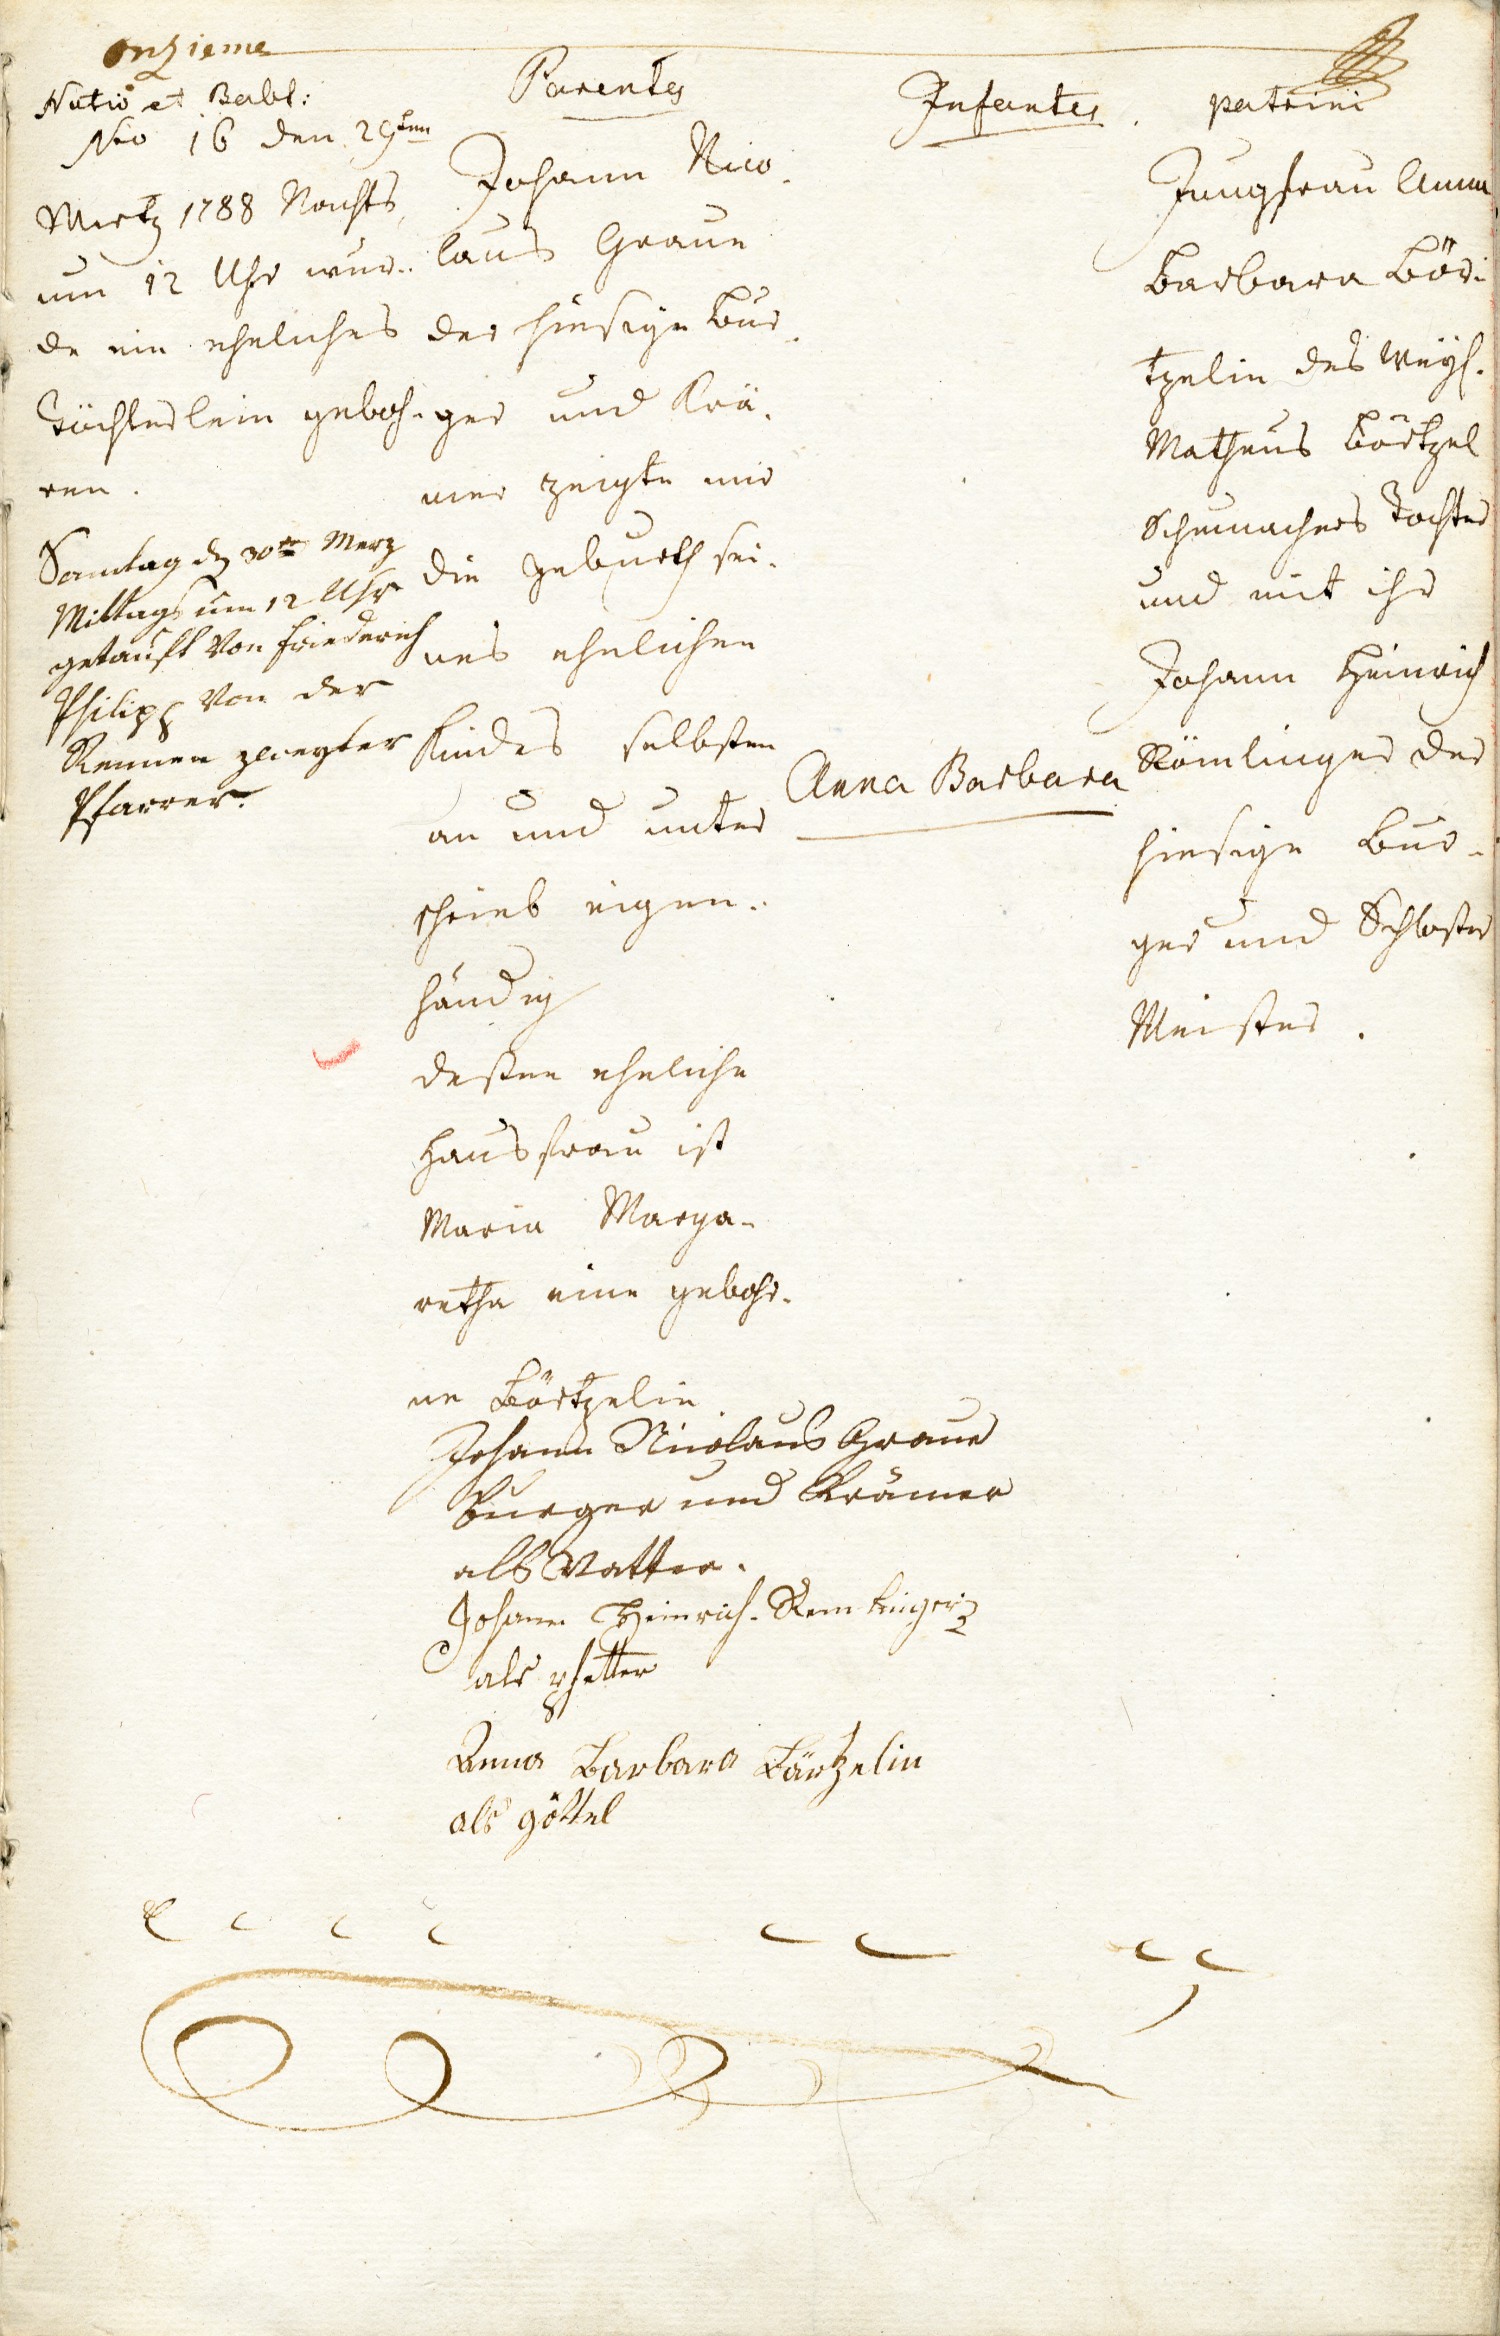 onzieme
Natio et Babt:
Nro 16 den 29ten
Mertz 1788 Nachts
um 12 Uhr wur-
de ein eheliches
Töchterlein geboh-
ren.
Sonntag d 30te Merz
Mittags um 12 Uhr
getauft von Friederich
Philipp von der
Rennen zweyter
Pfarrer.
Parentes
Johann Nico-
laus Graue
der hiesige Bur-
ger und Krä-
mer zeigte mir
die geburth sei-
nes ehelichen
Kindes selbsten
an und unter
schrieb eigen-
händig
deßen eheliche
Hausfrau ist
Maria Marga-
retha eine gebohr-
ne Börtzelin
Johann Nicolaus Graue
Burger und Krämer
als Vatter.
Johann Heinrich Remlinger
als pfetter
Anna Barbara Bärtzelin
als göttel
Infantes.
Anna Barbara
patrini
Jungfrau Anna
Barbara Bör-
tzelin des weyl.
Matheus Börtzel
Schumachers Tochter
und mit ihr
Johann Heinrich
Römlinger der
hiesige Bur-
ger und Schloßer
Meister.